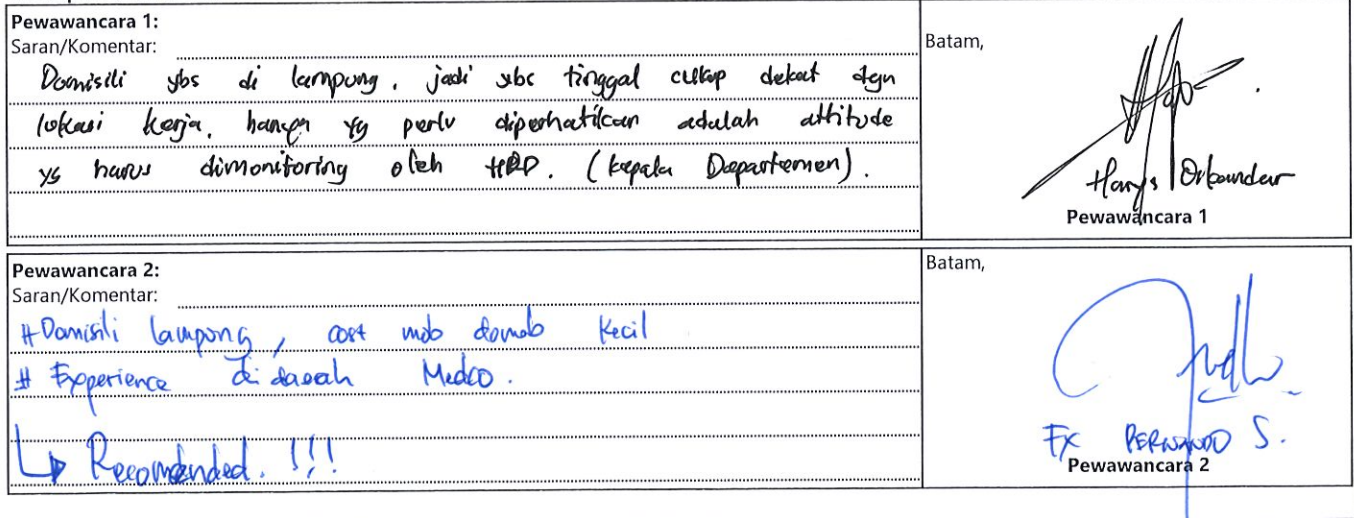 Pewawancara 1:
Saran/Komentar:
Domisili ybs di lampung, jadi ybs tinggal cukup dekat dgn
lokasi kerja. hanya yg perlu diperhatikan adalah attitude
yg harus dimonitoring oleh HRD. (kepala Departemen).
Batam,
Harys
Pewawancara 1
Pewawancara 2:
Saran/Komentar:
# Domisili lampung, cost mob demob kecil
# Experience di daerah Medco.
↳ Recomended. !!!
Batam,
FX FERNANDO S.
Pewawancara 2